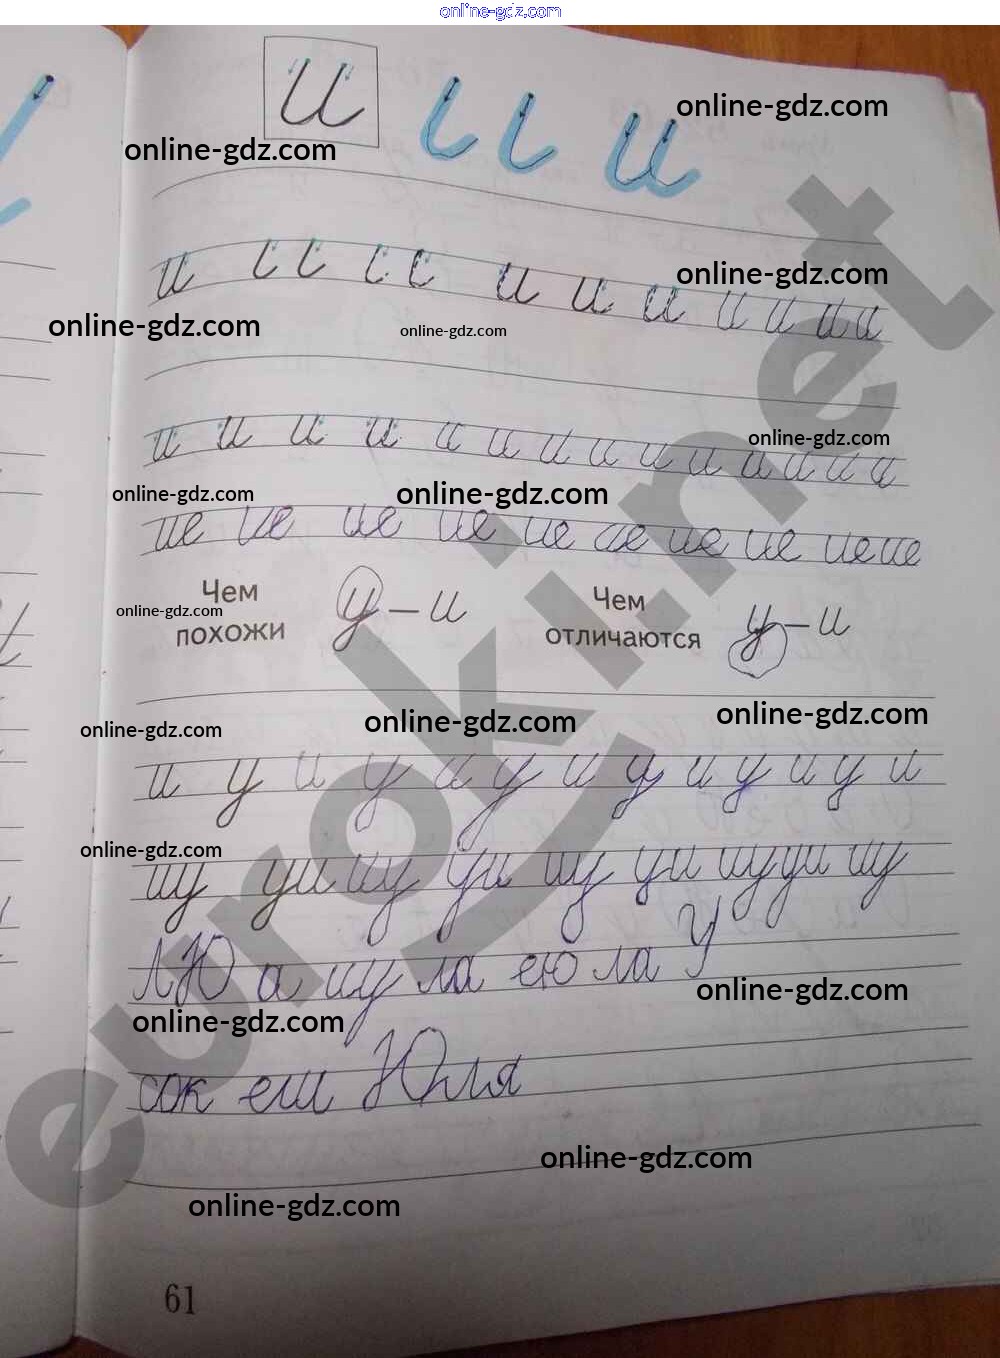 online-gdz.com
и
online-gdz.com
online-gdz.com
и и и и и и и и
online-gdz.com
online-gdz.com
online-gdz.com
и и и и и и и и и и и и и и и
online-gdz.com
online-gdz.com
online-gdz.com
ие ие ие ие ие ие ие ие ие ие
Чем похожи у – и Чем отличаются у – и
online-gdz.com
online-gdz.com
online-gdz.com
online-gdz.com
и у и у и у и у и у и у и
online-gdz.com
иу уи иу уи иу уи иу уи иу
У
ЛЮ а иу ла ею ла
online-gdz.com
online-gdz.com
сок еш Юля
online-gdz.com
online-gdz.com
61
eurokinet